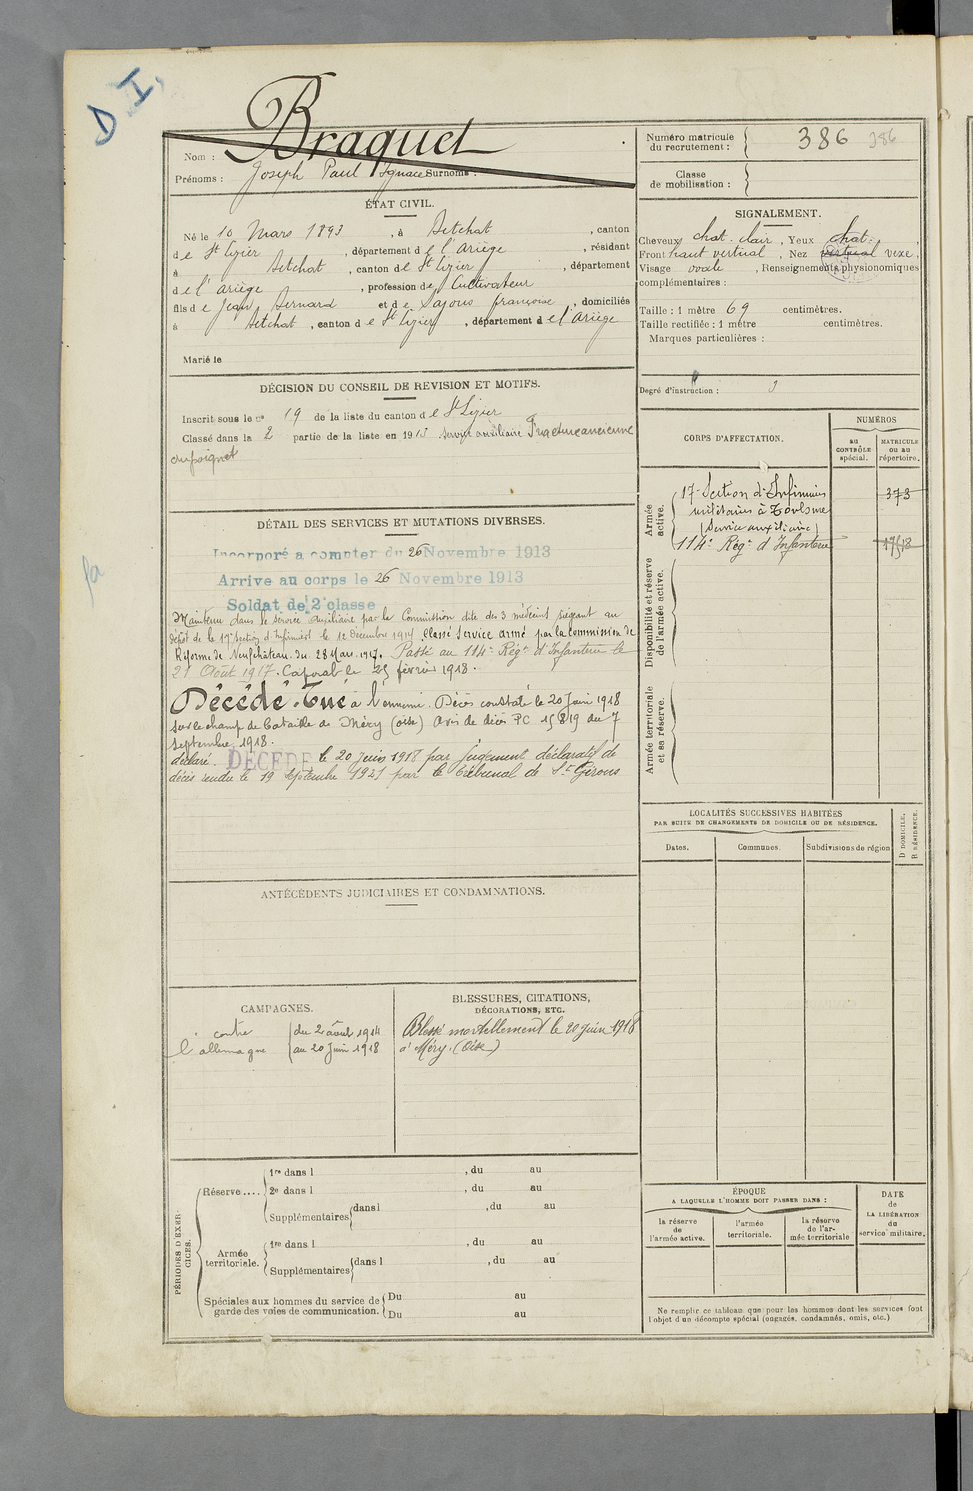 D I,
Braquet
Nom :
Prénoms : Joseph Paul Ignace Surnoms :
Numéro matricule du recrutement : 386 386
Classe de mobilisation :
ÉTAT CIVIL.
Né le 10 Mars 1893, à Betchat, canton
de St Lizier, département de l'Ariège, résident
à Betchat, canton de St Lizier, département
de l'Ariège, profession de Cultivateur
fils de Jean Bernard et de Sajous françoise, domiciliés
à Betchat, canton de St Lizier, département de l'Ariège
Marié le
SIGNALEMENT.
Cheveux chat. clair, Yeux chat.,
Front haut vertical, Nez vertical vexe,
Visage ovale, Renseignements physionomiques
complémentaires :
Taille : 1 mètre 69 centimètres.
Taille rectifiée : 1 mètre centimètres.
Marques particulières :
Degré d'instruction : 3
DÉCISION DU CONSEIL DE REVISION ET MOTIFS.
Inscrit sous le no 19 de la liste du canton de St Lizier
Classé dans la 2 partie de la liste en 1913 Service auxiliaire Fracture ancienne
du poignet
DÉTAIL DES SERVICES ET MUTATIONS DIVERSES.
Incorporé a compter du 26 Novembre 1913
Arrive au corps le 26 Novembre 1913
Soldat de 2e classe
Maintenu dans le service auxiliaire par la Commission dite des 3 médecins siégeant au
dépôt de la 17e Section d'Infirmiers le 12 Décembre 1914. Classé Service armé par la commission de
Réforme de Neufchâteau du 28 Mai 1917. Passé au 114e Régt d'Infanterie le
21 Août 1917. Caporal le 25 février 1918.
Décédé. Tué à l'ennemi. Décès constaté le 20 Juin 1918
sur le champ de bataille de Méry (oise) Avis de décès PC 15819 du 7
Septembre 1918.
déclaré DÉCÉDÉ le 20 juin 1918 par Jugement déclaratif de
décès rendu le 19 Septembre 1921 par le tribunal de St Girons
CORPS D'AFFECTATION.
NUMÉROS
au CONTRÔLE spécial.
MATRICULE OU AU répertoire.
Armée active.
17e Section d'Infirmiers 373
militaires à Toulouse
(Service auxiliaire)
114e Régt d'Infanterie 17513
Disponibilité et réserve de l'armée active.
Armée territoriale et sa réserve.
LOCALITÉS SUCCESSIVES HABITÉES
PAR SUITE DE CHANGEMENTS DE DOMICILE OU DE RÉSIDENCE.
Dates.
Communes.
Subdivisions de région
D DOMICILE, R RÉSIDENCE.
ANTÉCÉDENTS JUDICIAIRES ET CONDAMNATIONS.
CAMPAGNES.
contre l'allemagne
du 2 août 1914
au 20 Juin 1918
BLESSURES, CITATIONS,
DÉCORATIONS, ETC.
Blessé mortellement le 20 juin 1918
à Méry. (Oise)
PÉRIODES D'EXERCICES.
Réserve....
1re dans l , du au
2e dans l , du au
Supplémentaires dans l , du au
Armée territoriale.
1re dans l , du au
Supplémentaires dans l , du au
Spéciales aux hommes du service de
garde des voies de communication.
Du au
Du au
ÉPOQUE
A LAQUELLE L'HOMME DOIT PASSER DANS :
la réserve de l'armée active.
l'armée territoriale.
la réserve de l'armée territoriale
DATE de LA LIBÉRATION du service militaire.
Ne remplir ce tableau que pour les hommes dont les services font
l'objet d'un décompte spécial (engagés, condamnés, omis, etc.)